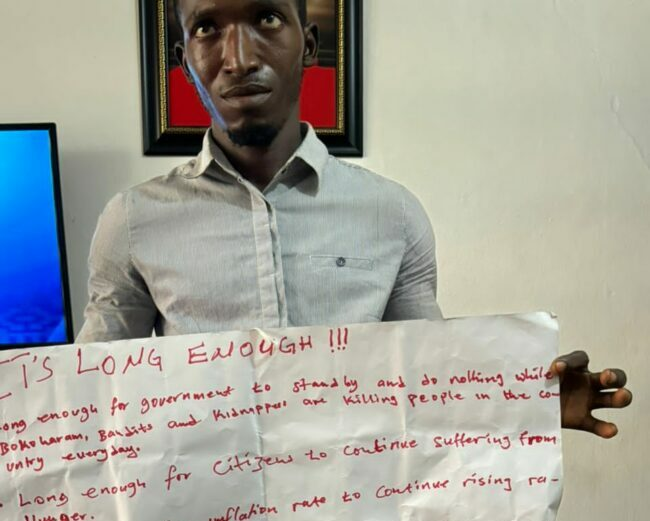 IT'S LONG ENOUGH !!!
ong enough for government to standby and do nothing while
Bokoharam, Bandits and Kidnappers are killing people in the co-
untry everyday.
Long enough for Citizens to continue suffering from
Hunger.
inflation rate to continue rising ra-